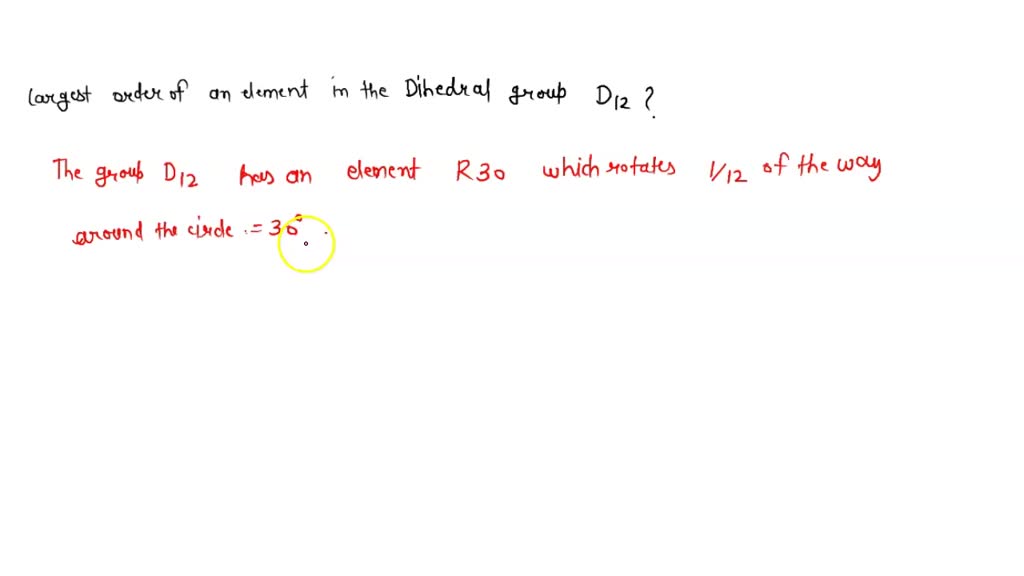 Largest order of an element in the Dihedral group D12 ?
The group D12 has an element R30 which rotates 1/12 of the way
around the circle .= 30° .